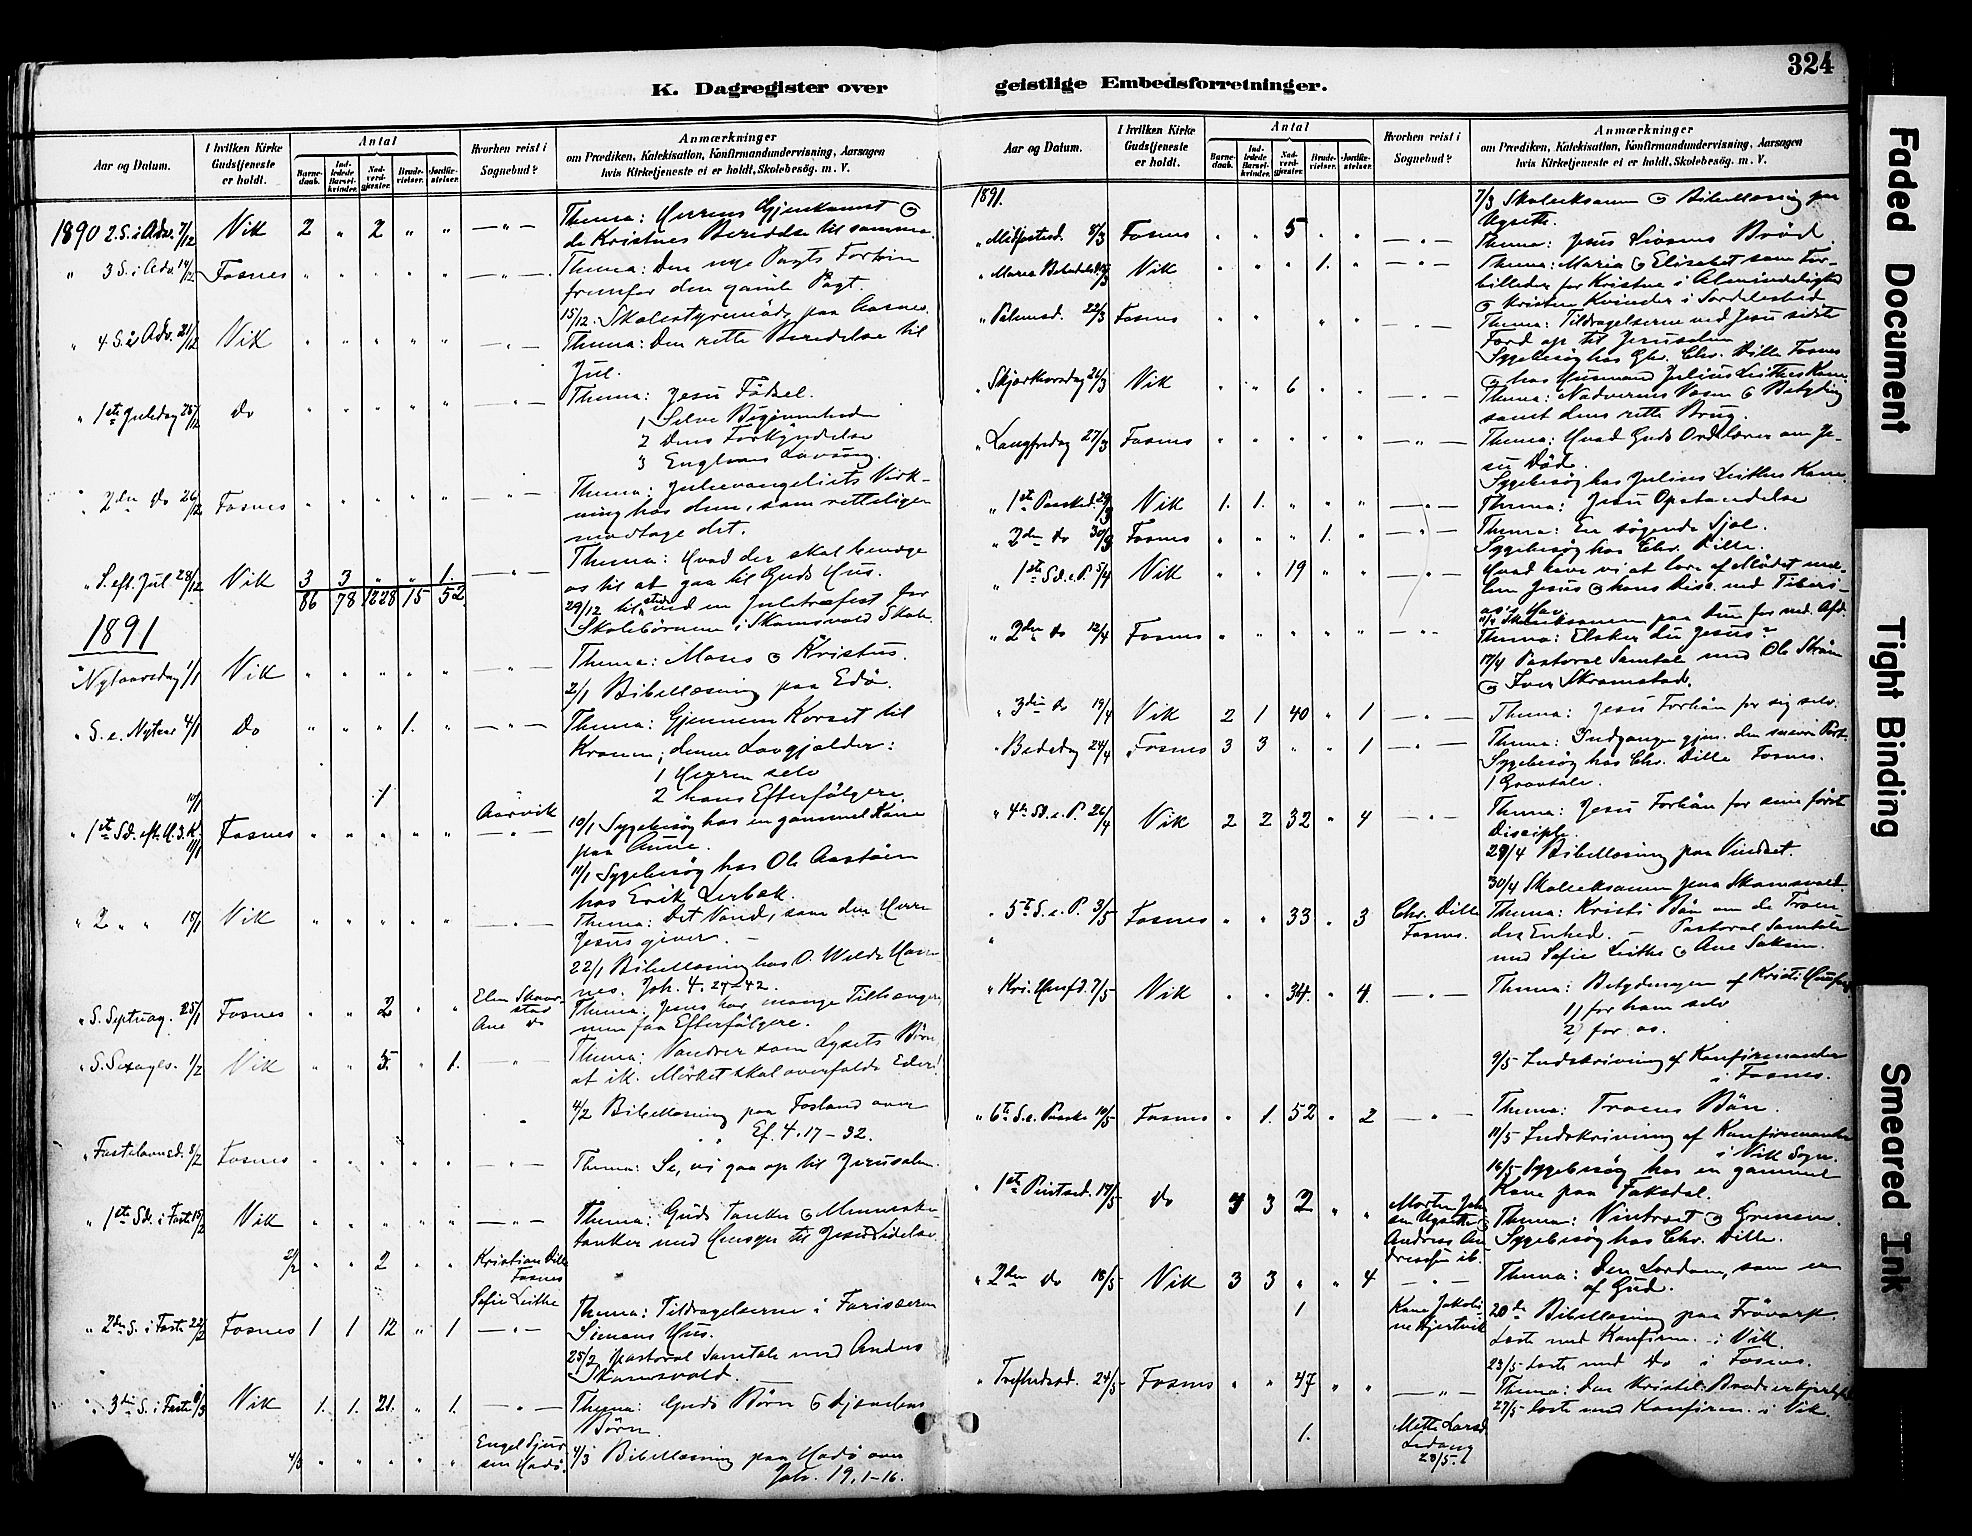 324
K. Dagregister over geistlige Embedsforretninger.
Aar og Datum.
I hvilken Kirke Gudstjeneste er holdt.
Antal
Barne-daab.
Ind-ledede Barsel-kvinder.
Nad-verd-gjester.
Brude-vielser.
Jordfæ-stelser.
Hvorhen reist i Sognebud?
Anmærkninger
om Prædiken, Katekisation, Konfirmandundervisning, Aarsagen
hvis Kirketjeneste ei er holdt, Skolebesøg. m. V.
1890 2. S. i Adv. 7/12 Vik 2 " 2 " " — " — Thema: Herrens Gjenkomst og
de Kristnes Beredelse til samme.
" 3 S. i Adv. 14/12 Fosnes " " " " " — " — Thema: Den nye Pagts Fortrin
fremfor den gamle Pagt.
15/12. Skolestyremöde paa
" 4 S. i Adv. 21/12 Vik " " " " " — " — Thema: Den rette Beredelse til
Jul.
" 1ste Juledag 25/12 do " " " " " — " — Thema: Jesu Födsel.
1 Selve Begivenheden
2 Dens Forkyndelse
3 Englenes Lovsang.
" 2den do 26/12 Fosnes " " " " " — " — Thema: Juleevangeliets Virk-
ning hos dem, som retteligen
modtage det.
" S. eft. Jul 28/12 Vik 3 3 " " 1. — " — Thema: Hvad der skal bevæge
os til at gaa til Guds Hus.
86 78 1228 15 52
29/12 tilstede ved en Juletræfest for
Skolebörnene i Skomsvold Skole.
1891
" Nytaarsdag 1/1 Vik " " " " " — " — Thema: Moses og Kristus.
2/1 Bibellæsning paa Edö.
" S. e. Nytaar 4/1 do " " " 1. " — " — Thema: Gjennem Korset til
Kronen; denne Lov gjælder:
1 Herren selv
2 hans Efterfölgere.
10/1 1 Aarvik
" 1ste Sd. eft. H. 3. K. 11/1 Fosnes " " " " " — " — 10/1 Sygebesög hos en gammel Kone
paa
11/1 Sygebesög hos Ole
hos Erik Lerbak.
" 2 " " 18/1 Vik " " " " " — " — Thema: Det Vand, som den Herre
Jesus giver. —
22/1 Bibellæsning hos O.
Joh. 4. 27-42.
" S. Septuag. 25/1 Fosnes " " 2 " " Thema: Jesus har mange Tilhængere
men faa Efterfölgere.
" S. Sexages. 1/2 Vik " " 5. " 1. — " — Thema: Vandrer som Lysets Börn
at ik. Mörket skal overfalde Eder!
4/2 Bibellæsning paa Fosland over
Ef. 4. 17-32.
" Fastelavnsd. 8/2 Fosnes " " " " " — " — Thema: Se, vi gaa op til Jerusalem.
" 1ste Sd. i Faste 15/2 Vik " " " " " — " — Thema: Guds tanker og Menneske-
tanker med Hensyn til Jesu Lidelse.
21/2 " " 2 " " Kristian Dille
Fosnes
Sofie Leithe
" 2den S. i Faste 22/2 Fosnes 1 1 12 " 1 — " — Thema: Tildragelserne i Farisæeren
Simons Hus.
25/2 pastoral Samtale med Anders
Skomsvold.
" 3die S. i Faste 1/3 Vik 1. 1. 21. " 1. — " — Thema: Guds Börn og Djævelens
Börn.
4/3 " " " " " 4/3 Bibellæsning paa Hodö over
Joh. 19, 1-16.
Aar og Datum.
I hvilken Kirke Gudstjeneste er holdt.
Antal
Barne-daab.
Ind-ledede Barsel-kvinder.
Nad-verd-gjester.
Brude-vielser.
Jordfæ-stelser.
Hvorhen reist i Sognebud?
Anmærkninger
om Prædiken, Katekisation, Konfirmandundervisning, Aarsagen
hvis Kirketjeneste ei er holdt. Skolebesøg. m. V.
1891. 7/3 Skoleeksamen og Bibellæsning paa
" Midfastesd. 8/3 Fosnes " " 5 " " — " — Thema: Jesus Livsens Bröd.
" Mariæ Bebudelsesd. Vik " " " 1. " — " — Thema: Maria og Elisabet som For-
billeder for Kristne i Almindelighed
og kristne Kvinder i Særdeleshed.
" Palmesd. 22/3 Fosnes " " " " — " — Thema: Tildragelserne ved Jesu sidste
Færd op til Jerusalem
Sygebesög hos Chr. Dille Fosnes
og hos Husmand Julius Leithes Kone
" Skjærthorsdag 26/3 Vik " " 6 " " — " — Thema: Nadverens Væsen og Betydning
samt dens rette Brug.
" Langfredag 27/3 Fosnes " " " " " — " — Thema: Hvad Guds Ord lærer om Je-
su Död.
Sygebesög hos Julius Leithes Kone.
" 1ste Paasked. 29/3 Vik 1. 1. " " " — " — Thema: Jesu Opstandelse
" 2den do 30/3 Fosnes " " " 1. " Thema: En sögende Sjæl.
Sygebesög hos Chr. Dille.
" 1ste Sd. e. P. 5/4 Vik " " 19 " " — " — Hvad have vi at lære af Mödet mel-
lem Jesus og hans Disc. ved Tiberi-
as's Hav.
Skoleeksamen paa Dun for ned. Afd.
" 2den do 12/4 Fosnes " " " " " — " — Thema: Elsker du Jesus?
17/4 Pastoral Samtale med Ole
og Iver Skramstad.
" 3die do 19/4 Vik 2 1 40 " 1 — " — Thema: Jesu Forbön for sig selv.
" Bededag 24/4 Fosnes 3 3 " " 1 — " — Thema: Indgangen gjen. den snevre Port.
Sygebesög hos Chr. Dille Fosnes.
1 Gravtale.
" 4de Sd. e. P. 26/4 Vik 2 2 32 " 4 — " — Thema: Jesu Forbön for sine förste
Disciple.
29/4 Bibellæsning paa Vindset.
30/4 Skoleeksamen paa Skomsvold.
" 5te S. e. P. 3/5 Fosnes " " 33 " 3 Chr. Dille
Fosnes. Thema: Kristi Bön om de Troen-
des Enhed. — Pastoral Samtale
med Sofie Leithe og Ane
" Kri. Himfd. 7/5 Vik " " 34. " 4. — " — Thema: Betydningen af Kristi Himfart
1) for ham selv
2) for os.
9/5 Indskrivning af Konfirmander
i Fosnes.
" 6te S. e. Paaske 10/5 Fosnes " 1. 52 " 2 — " — Thema: Troens Bön.
11/5 Indskrivning af Konfirmander
i Vik Sogn.
16/5 Sygebesög hos en gammel
Kone paa Faksdal.
" 1ste Pintsed. 17/5 do 4 3 2 " " Morten Joh-
Andreas An-
dressen ib. Thema: Vintræet og Grenene.
Sygebesög hos Chr. Dille.
" 2den do 18/5 Vik 3 3 " " 4 — " — Thema: Den Lærdom, som er
af Gud.
1 Kone Jakobi-
ne 20de Bibellæsning paa
Læste med Konfirm. i Vik.
23/5 læste med do i Fosnes.
" Trefoldsd. 24/5 Fosnes " " 47 " " — " — Thema: Den kristel. Broderkjærlighed.
27/5 læste med Konfirm. i Vik.
1. Mette Larsd.
28/5.
Faded Document
Tight Binding
Smeared Ink